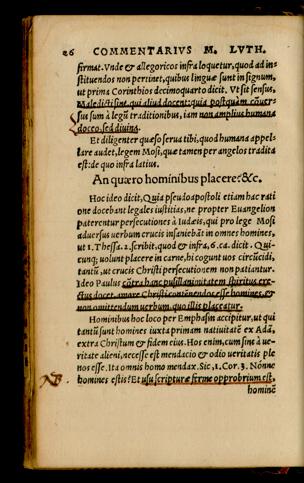 26 COMMENTARIVS M. LVTH.
firmat. Vnde & allegoricos infra loquetur, quod ad in-
stituendos non pertinet, quibus linguæ sunt in signum,
ut prima Corinthios decimoquarto dicit. Vt sit sensus,
Maledicti sint qui aliud docent: quia postquàm cōuer-
sus sum à legū traditionibus, iam non amplius humana
doceo, sed diuina.
Et diligenter quæso serua tibi, quod humana appel-
lare audet, legem Mosi, quæ tamen per angelos tradita
est: de quo infra latius.
An quæro hominibus placere? &c.
Hoc ideo dicit, Quia pseudoapostoli etiam hac rati
one docebant legales iustitias, ne propter Euangelion
paterentur persecutiones à Iudæis, qui pro lege Mosi
aduersus uerbum crucis insaniebāt in omnes homines,
ut 1. Thessa. 2. scribit, quod & infra, 6. ca. dicit. Qui-
cunq; uolunt placere in carne, hi cogunt uos circūcidi,
tantū, ut crucis Christi persecutionem non patiantur.
Ideo Paulus cōtra hanc pusillanimitatem spiritus ere-
ctus docet, amore Christi contēnendos esse homines, &
non omittendum uerbum, quo illis placeatur.
Hominibus hoc loco per Emphasin accipitur, ut qui
tantū sunt homines iuxta primam natiuitatē ex Adā,
extra Christum & fidem eius. Hos enim, cum sint à ue-
ritate alieni, necesse est mendacio & odio ueritatis ple
nos esse. Ita omnis homo mendax. Sic, 1. Cor. 3. Nōnne
homines estis? Et usu scripturæ ferme opprobrium est,
hominē